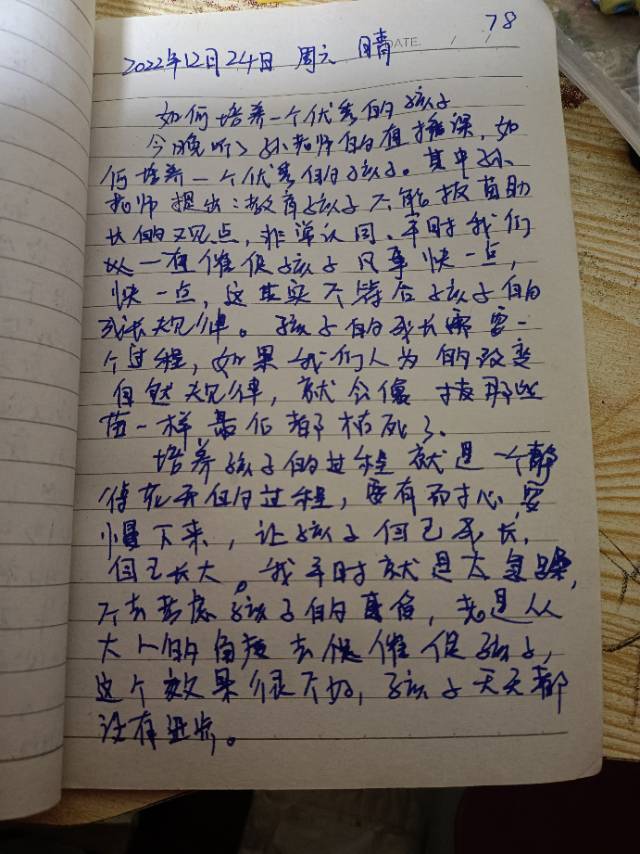 78
DATE / /
2022年12月24日 周六 晴
如何培养一个优秀的孩子
今晚听了孙老师的直播课,如
何培养一个优秀的孩子。其中孙
老师提出:教育孩子不能拔苗助
长的观点,非常认同。平时我们
一直催促孩子凡事快一点,
快一点,这其实不符合孩子的
成长规律。孩子的成长需要一
个过程,如果我们人为的改变
自然规律,就会像拔那些
苗一样最后都枯死了。
培养孩子的过程就是一个静
待花开的过程,要有耐心,要
慢下来,让孩子自己成长,
自己长大。我平时就是太急躁,
不去考虑孩子的真, 总是从
大人的角度去催促孩子,
这个效果很不好,孩子天天都
没有进步。